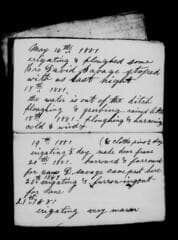 May 16th 1881
irigating & ploughed some
Bro David Savage stoped
with us last night
17th 1881.
the water is out of the ditch
ploughing &
18th 1881. ploughing & harrowing
cold & windy
19th 1881
irigating & day made door frame
20th 1881. harrowed & furrowed
for cane D. Savage camped here
21st irigating & furrowing out
for cane
1881
irigating very warm